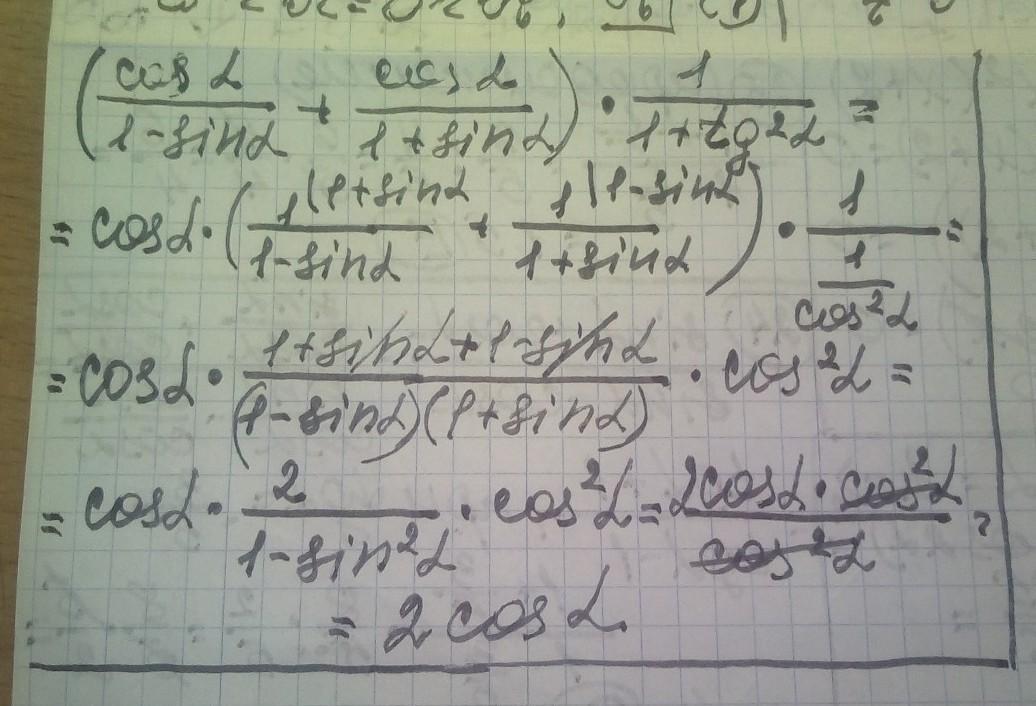 (cos α / 1-sin α + cos α / 1+sin α) · 1 / 1+tg²α =
= cos α · (1 \ 1+sin α / 1-sin α + 1 \ 1-sin α / 1+sin α) · 1 / (1 / cos²α) =
= cos α · 1+sin α+1-sin α / (1-sin α)(1+sin α) · cos²α =
= cos α · 2 / 1-sin²α · cos²α = 2cos α · cos²α / cos²α =
= 2 cos α.